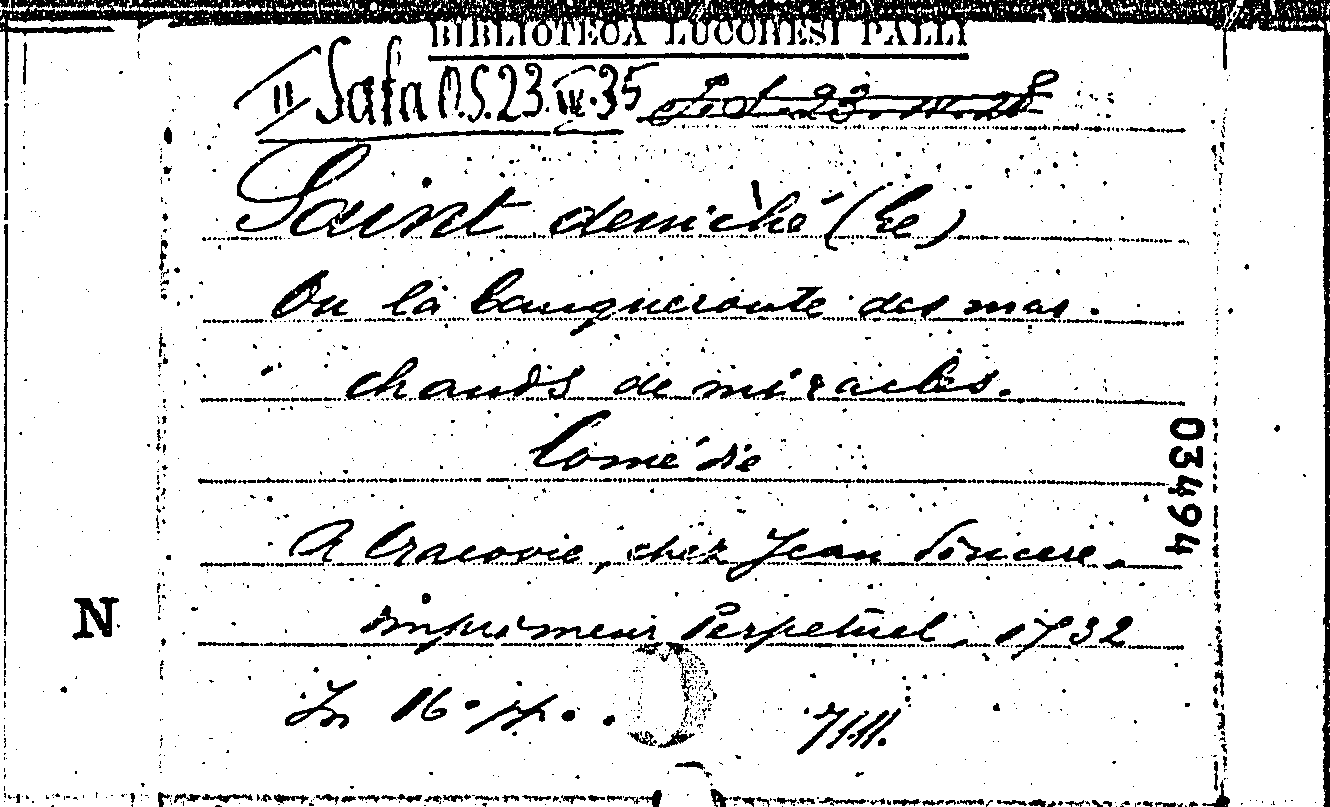 BIBLIOTECA LUCCHESI PALLI
II Sala O.S.23.IV.35
Saint deniché (Le)
Ou la banqueroute des mar-
chands de miracles.
Comédie
A Cracovie, chez Jean Sincere,
imprimeur Perpetuel, 1732
In 16° pp. .
03494
N